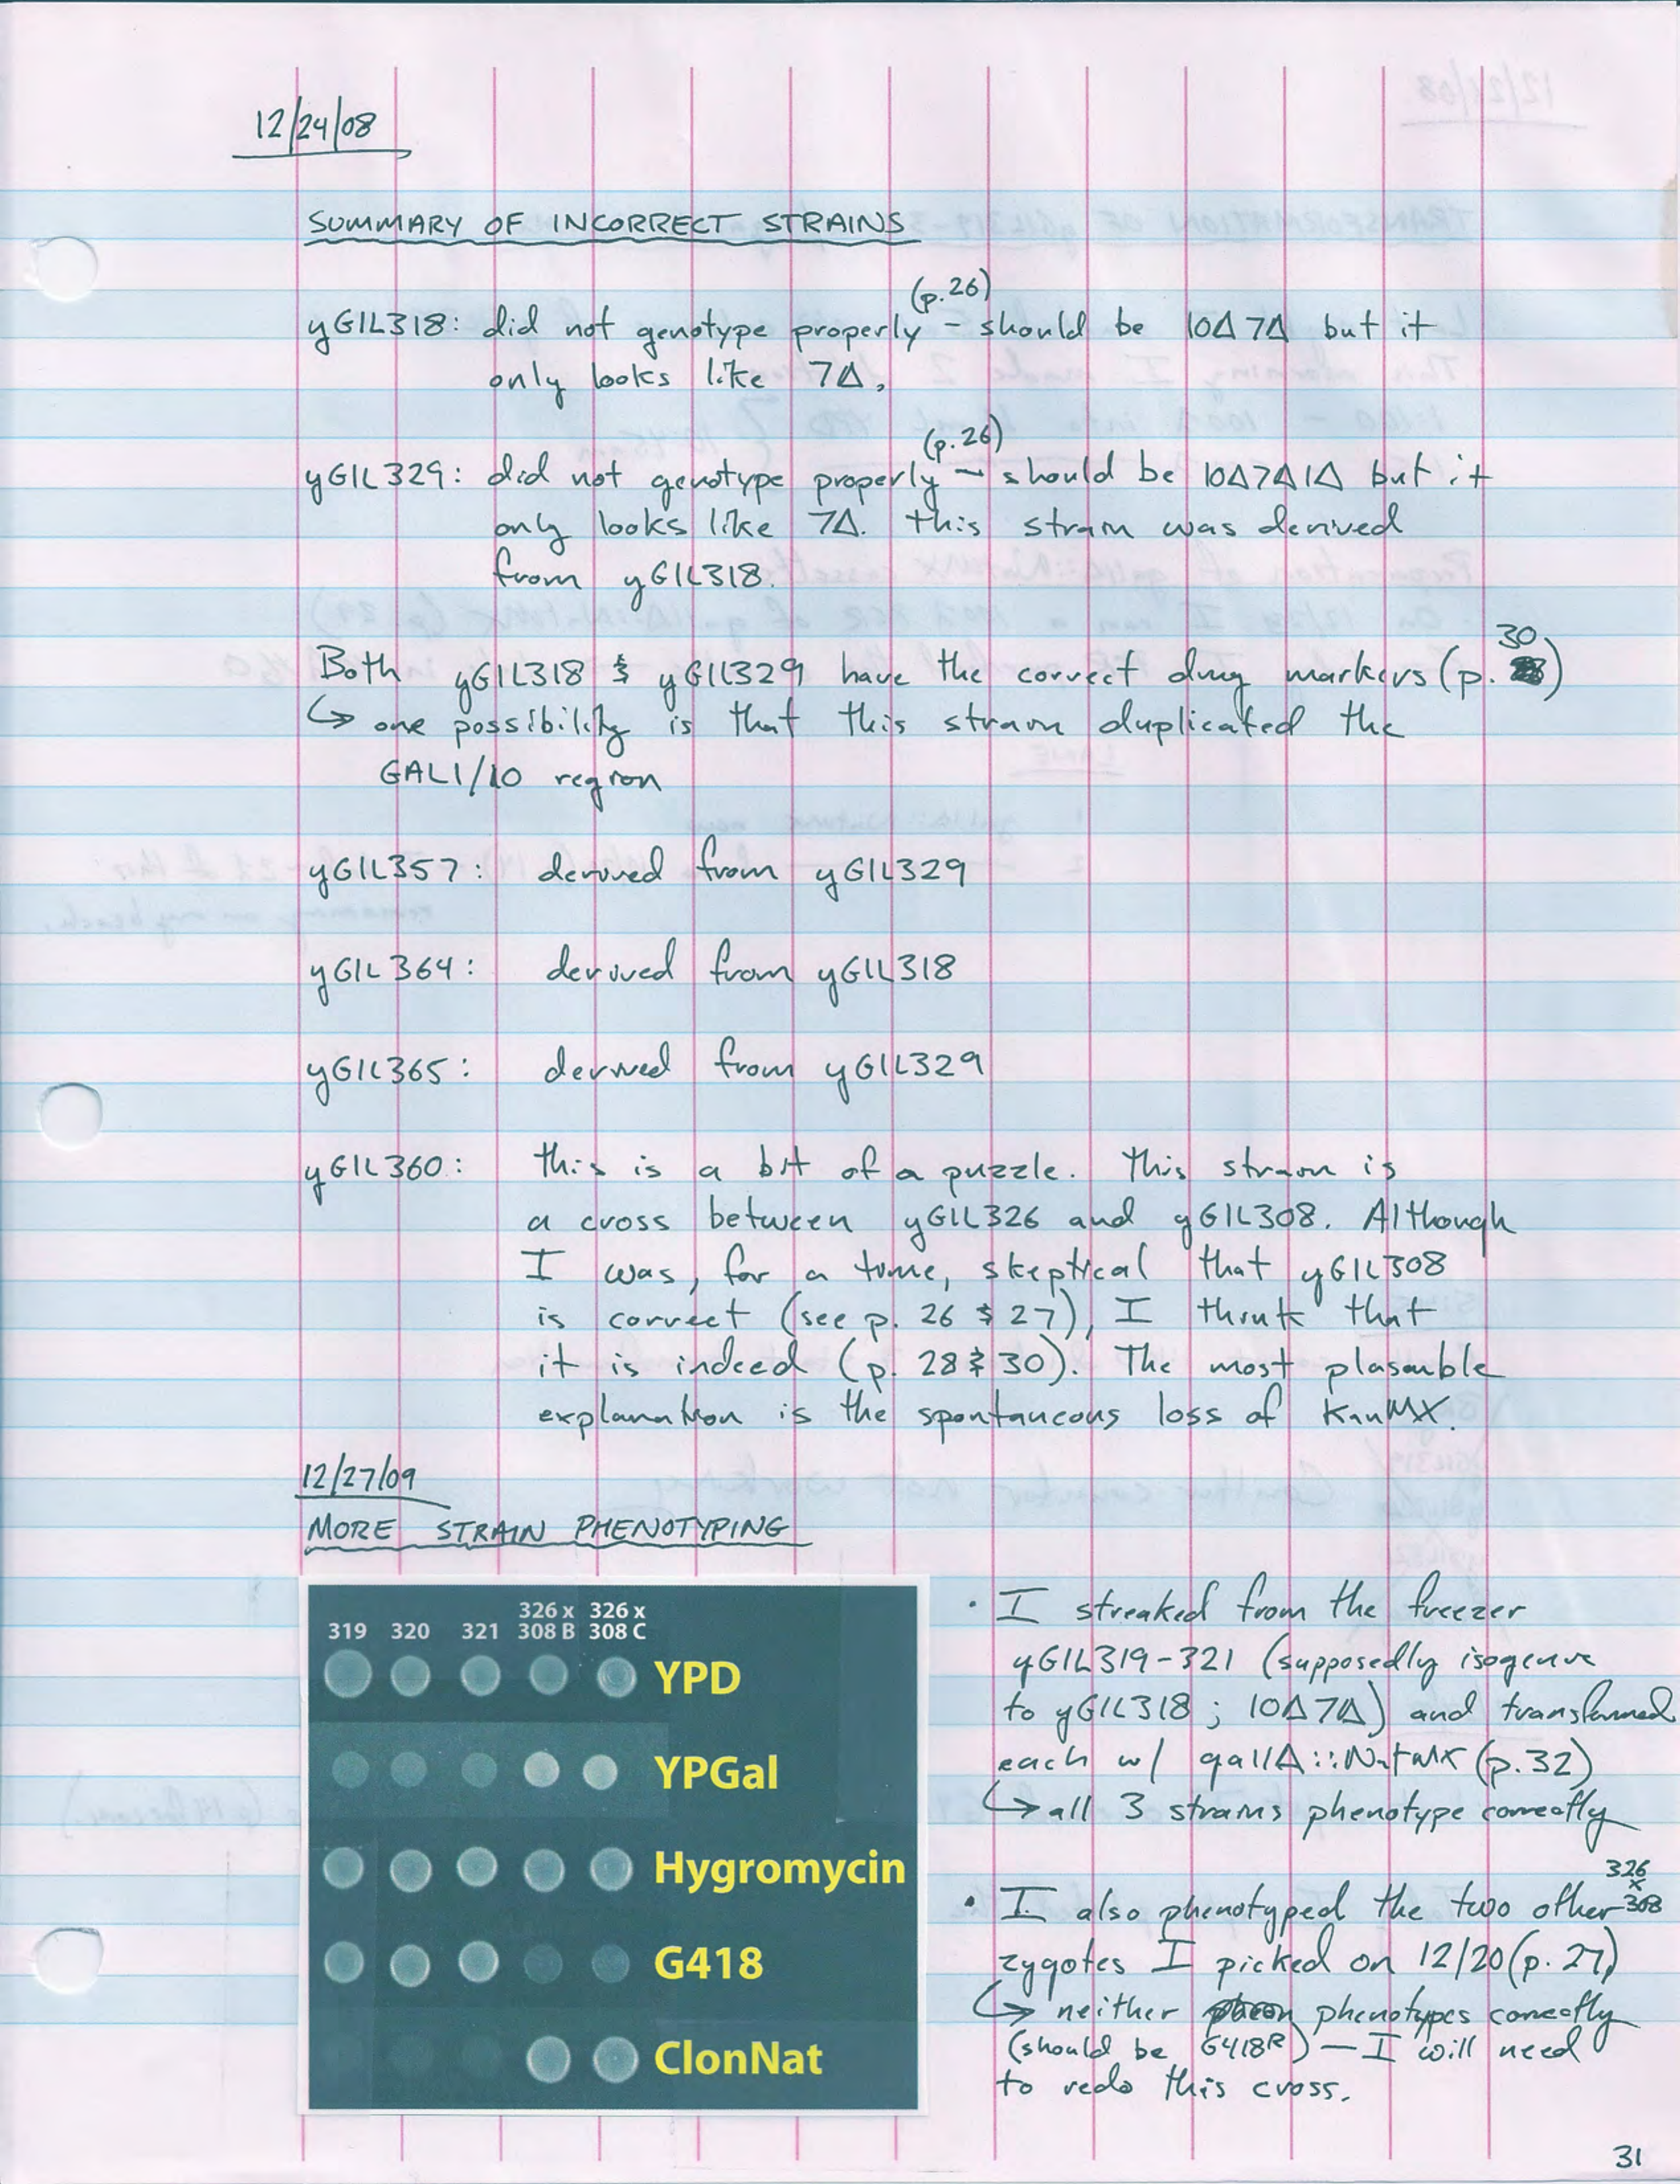 12/24/08
SUMMARY OF INCORRECT STRAINS
(p.26)
yGIL318: did not genotype properly – should be 10Δ 7Δ but it
only looks like 7Δ.
(p.26)
yGIL329: did not genotype properly – should be 10Δ7Δ1Δ but it
only looks like 7Δ. this strain was derived
from yGIL318.
30
Both yGIL318 & yGIL329 have the correct drug markers (p. )
↳ one possibility is that this strain duplicated the
GAL1/10 region
yGIL357: derived from yGIL329
yGIL364: derived from yGIL318
yGIL365: derived from yGIL329
yGIL360: this is a bit of a puzzle. This strain is
a cross between yGIL326 and yGIL308. Although
I was, for a time, skeptical that yGIL308
is correct (see p. 26 & 27), I think that
it is indeed (p. 28 & 30). The most plasauble
explanation is the spontaneous loss of KanMX.
12/27/09
MORE STRAIN PHENOTYPING
319 320 321 326 x 308 B 326 x 308 C
YPD
YPGal
Hygromycin
G418
ClonNat
• I streaked from the freezer
yGIL319-321 (supposedly isogenic
to yGIL318; 10Δ7Δ) and transformed
each w/ gal1Δ::NatMX (p.32)
↳ all 3 strains phenotype correctly
326
x
• I also phenotyped the two other 308
zygotes I picked on 12/20 (p. 27)
↳ neither phenotypes correctly
(should be G418R) – I will need
to redo this cross.
31